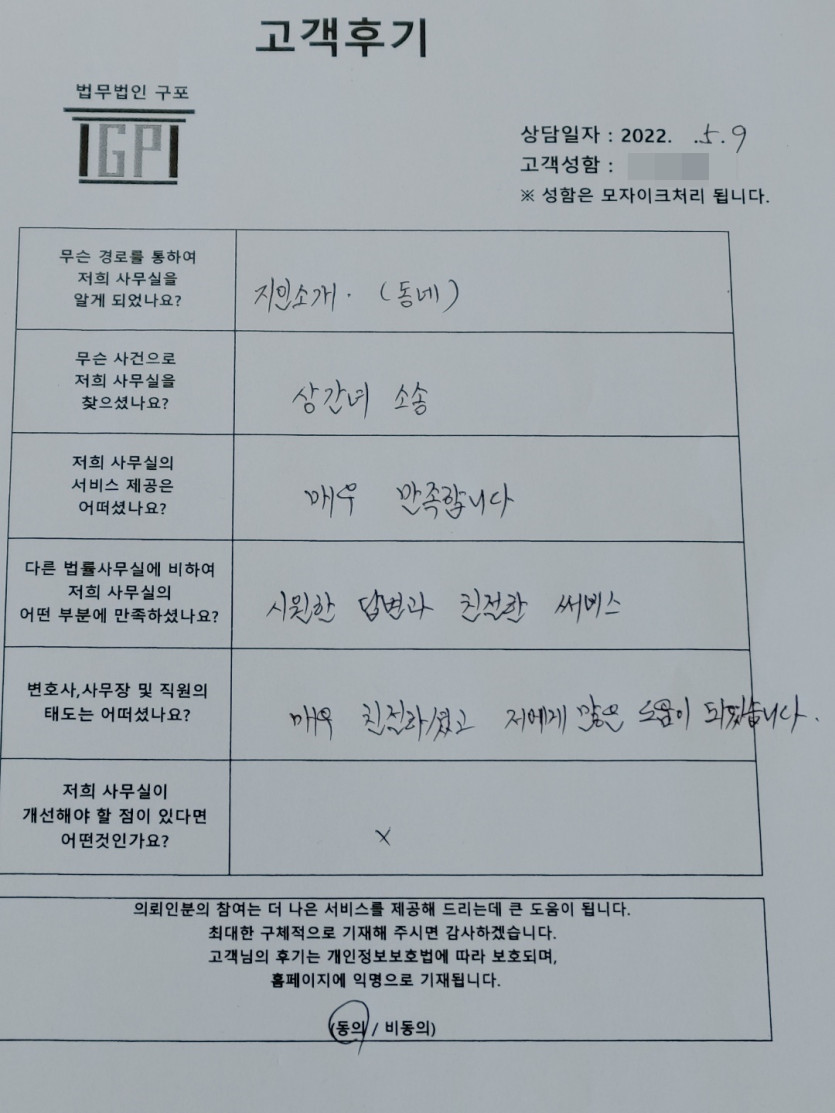 고객후기
법무법인 구포
IGPI
상담일자 : 2022. .5.9
고객성함 :
※ 성함은 모자이크처리 됩니다.
무슨 경로를 통하여
저희 사무실을
알게 되었나요?
지인소개. (동네)
무슨 사건으로
저희 사무실을
찾으셨나요?
상간녀 소송
저희 사무실의
서비스 제공은
어떠셨나요?
매우 만족합니다
다른 법률사무실에 비하여
저희 사무실의
어떤 부분에 만족하셨나요?
시원한 답변과 친절한 써비스
변호사,사무장 및 직원의
태도는 어떠셨나요?
매우 친절하셨고 저에게 많은 도움이 되었습니다.
저희 사무실이
개선해야 할 점이 있다면
어떤것인가요?
x
의뢰인분의 참여는 더 나은 서비스를 제공해 드리는데 큰 도움이 됩니다.
최대한 구체적으로 기재해 주시면 감사하겠습니다.
고객님의 후기는 개인정보보호법에 따라 보호되며,
홈페이지에 익명으로 기재됩니다.
(동의 / 비동의)